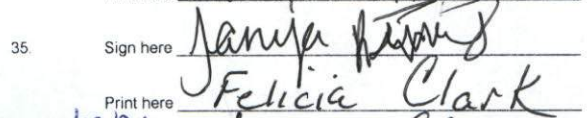 35. Sign here Janija
Print here Felicia Clark